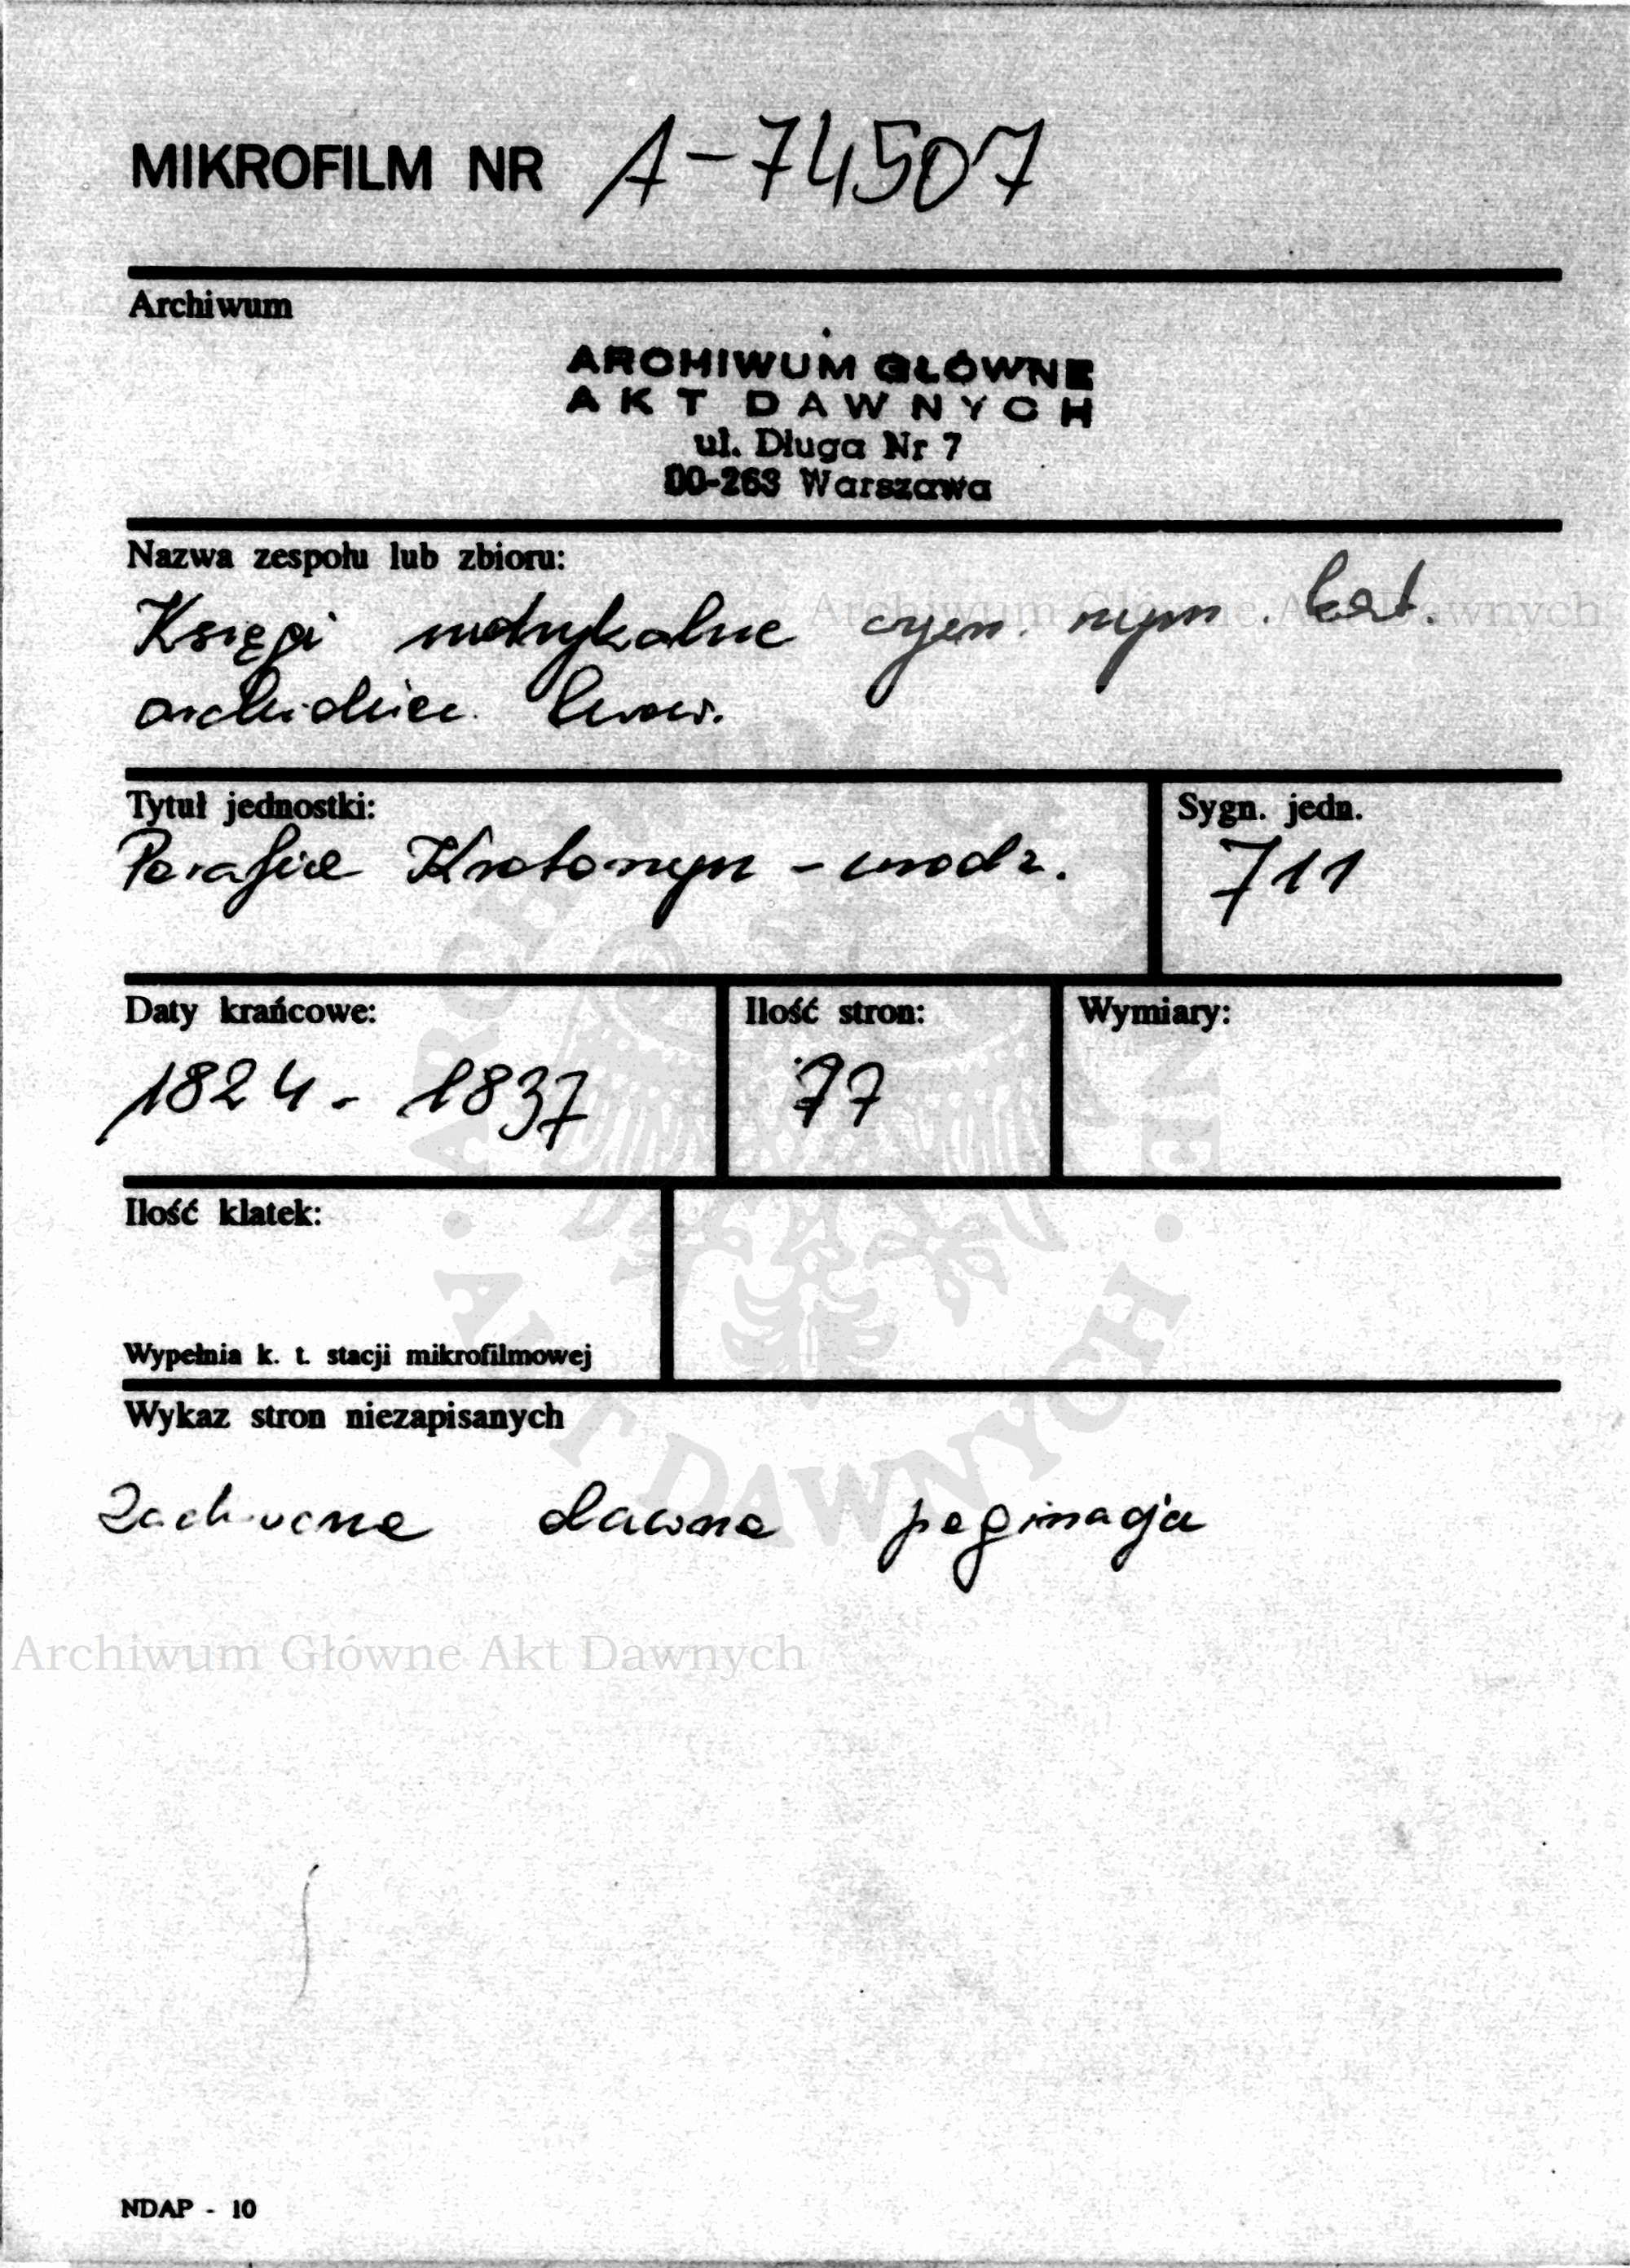 MIKROFILM NR A-74507
Archiwum
ARCHIWUM GŁÓWNE
AKT DAWNYCH
ul. Długa Nr 7
00-263 Warszawa
Nazwa zespołu lub zbioru:
Archiwum Główne Akt Dawnych
Księgi metrykalne rzym. kat.
archidiec. lwow.
Tytuł jednostki:
Parafia Krotoszyn - urodz.
Sygn. jedn.
711
Daty krańcowe:
1824 - 1837
Ilość stron:
77
Wymiary:
Ilość klatek:
Wypełnia k. t. stacji mikrofilmowej
Wykaz stron niezapisanych
Zachowana dawna paginacja
ARCHIWUM GŁÓWNE · AKT DAWNYCH ·
Archiwum Główne Akt Dawnych
NDAP - 10